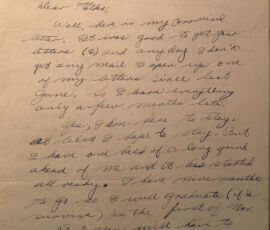 Dear Folks:
Well, here is my promised
letter. It was good to get your
letters (2) and any day I don't
get any mail I open up one
of my letters since last
June. So I learn everything
only a few months late.
Yes, I am here to stay.
at least I hope to stay. But
I have one heck of a long grind
ahead of me and it has started
all ready. I have nine months
to go so I will graduate (if I
survive) in the first of Nov.
will have to